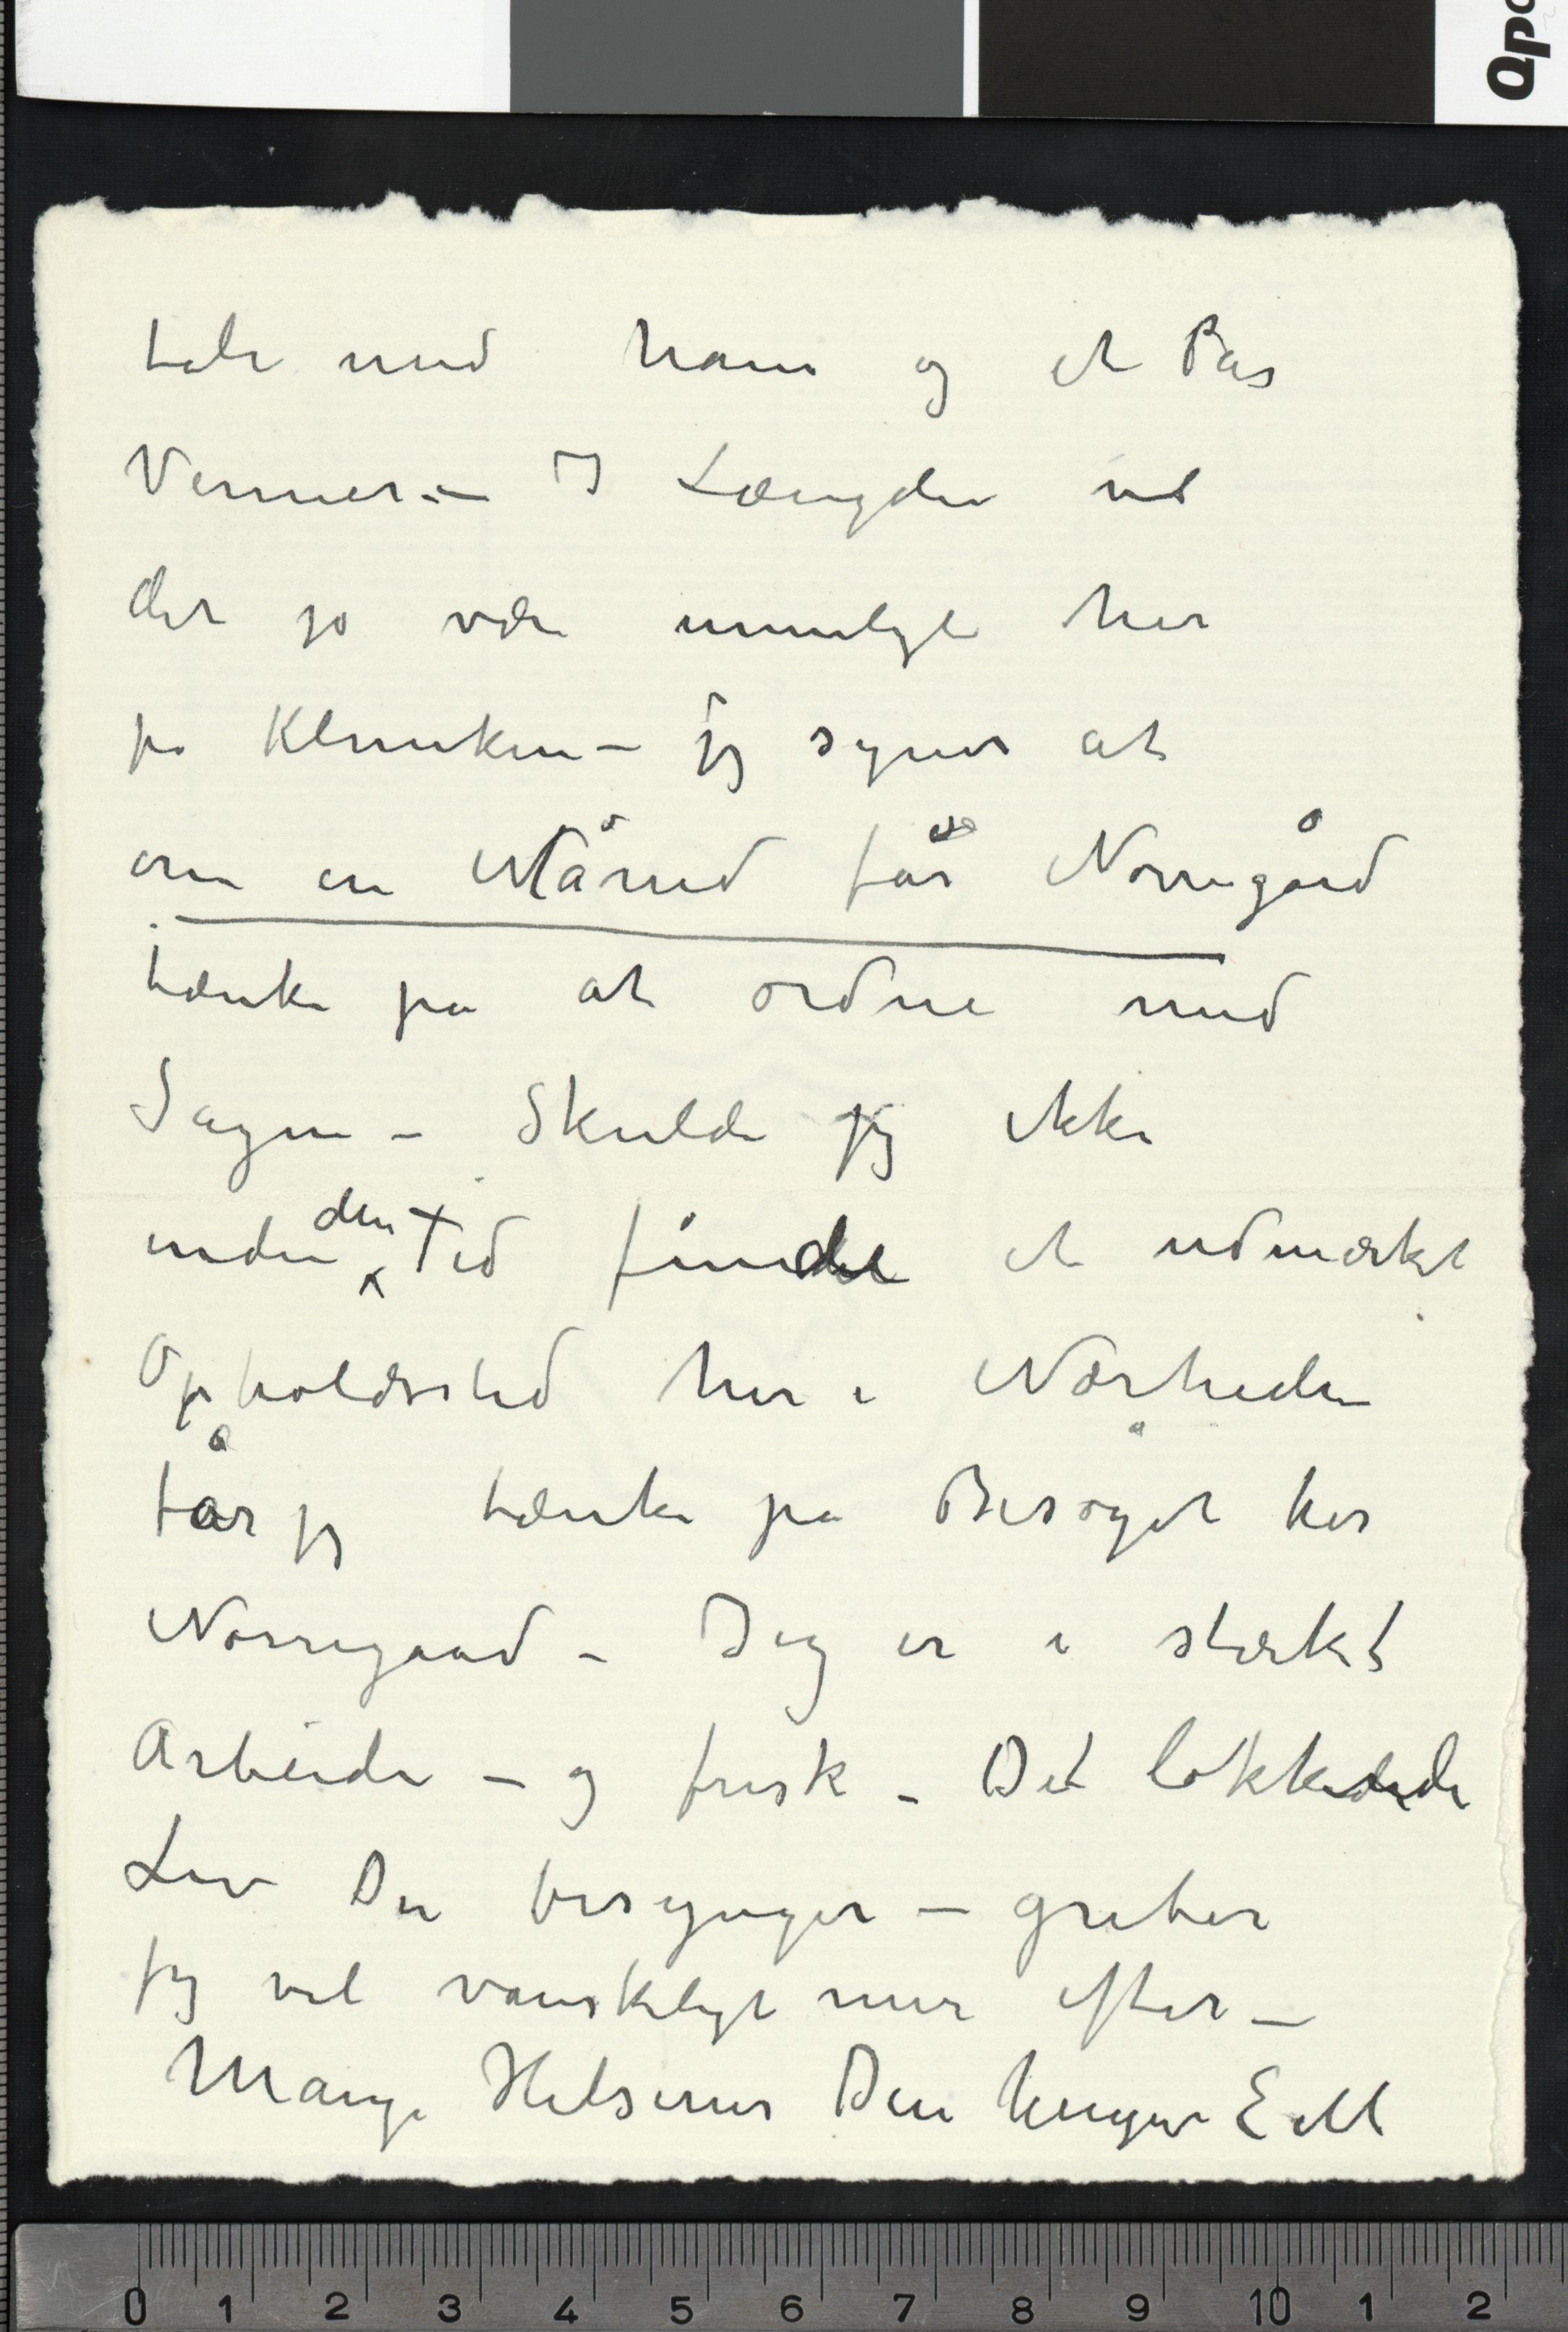 Opc
tale med ham og et Pas
Venner. – I Længden vil
det jo være umuligt her
på Kliniken – jeg synes at
om en Måned får Norregård
tænke på at ordne med
Sagen – Skulde jeg ikke
inden den Tid finde et udmærket
Opholdssted her i Nærheden
får jeg tænke på Besøget hos
Norregaard – Jeg er i stærkt
Arbeide – og frisk – Det lokkende
Liv Du besynger – griber
jeg vel vanskeligt mer efter –
Mange Hilsener Din hengivne E M
0 1 2 3 4 5 6 7 8 9 10 1 2